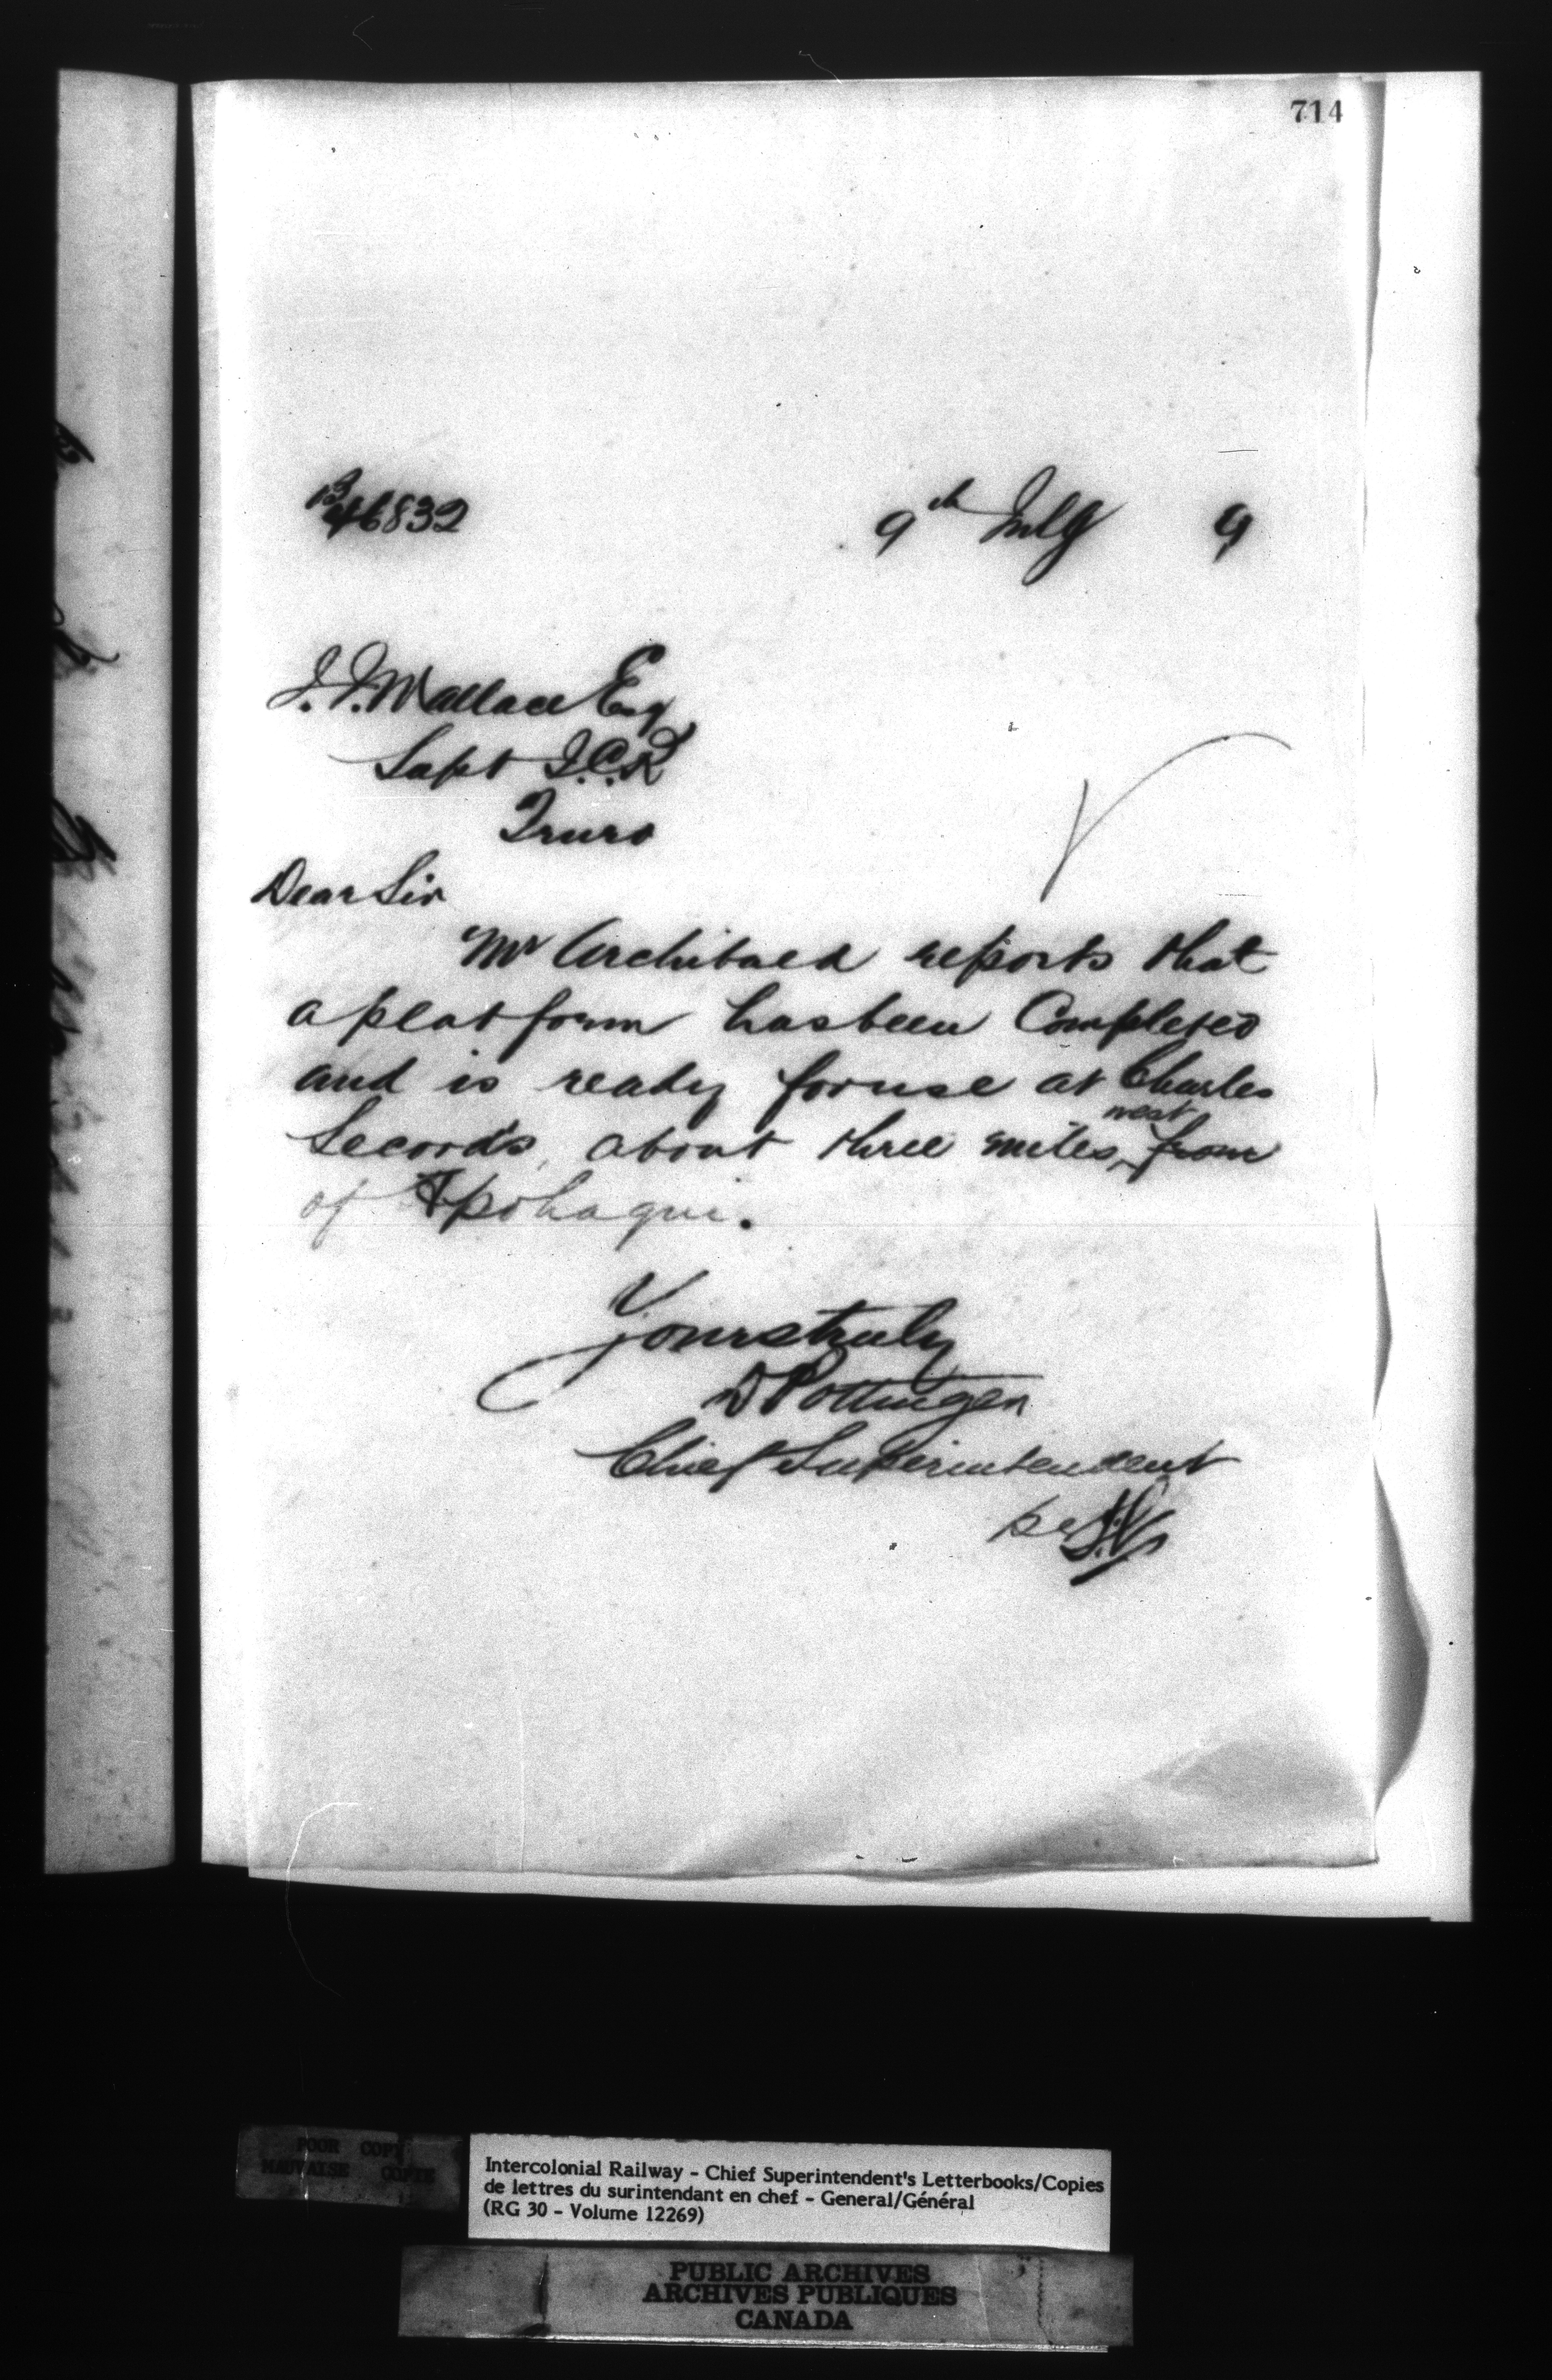 714
B
46832
9th July 9
J.J. Wallace Esq
Supt I.C.R
Truro
Dear Sir
Mr Archibald reports that
a platform has been Completed
and is ready for use at Charles
west
Secord's, about three miles from
of Apohaqui.
Yours truly
D Pottinger
Chief Superintendent
per
POOR COPY
MAUVAISE COPIE
Intercolonial Railway - Chief Superintendent's Letterbooks/Copies
de lettres du surintendant en chef - General/Général
(RG 30 - Volume 12269)
PUBLIC ARCHIVES
ARCHIVES PUBLIQUES
CANADA